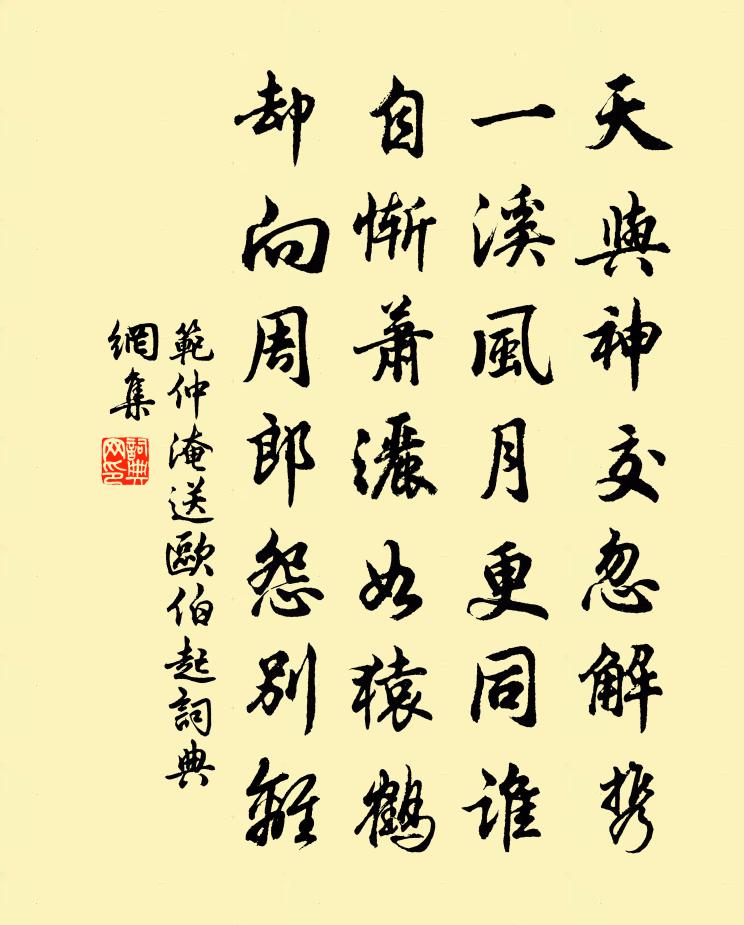 天與神交忽解携
一溪風月更同誰
自慚蕭灑如猿鶴
却向周郎怨別離
範仲淹送歐伯起詞典
網集
詞典網印